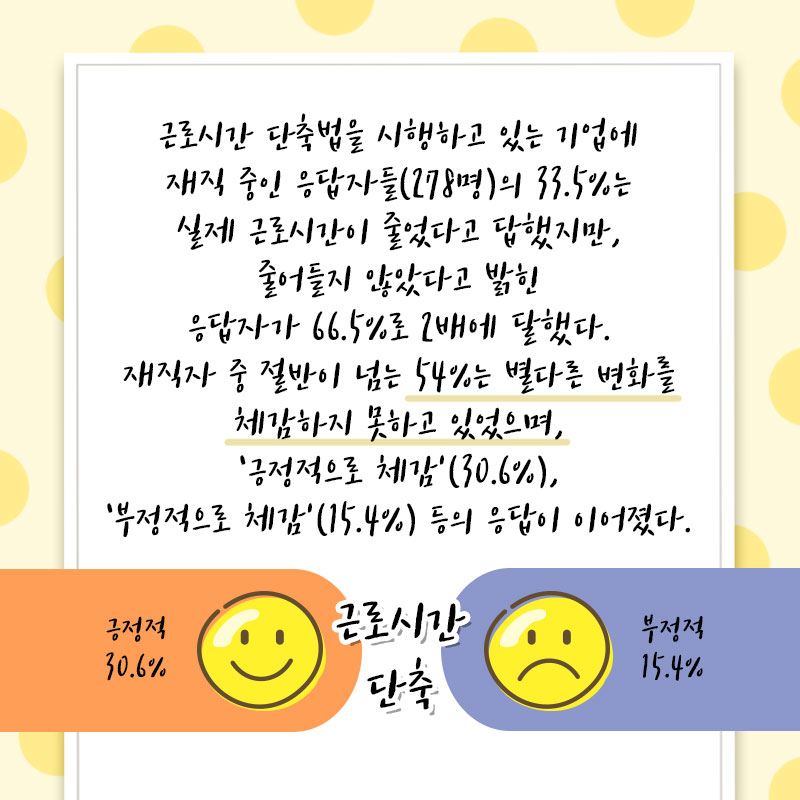 근로시간 단축법을 시행하고 있는 기업에
재직 중인 응답자들(278명)의 33.5%는
실제 근로시간이 줄었다고 답했지만,
줄어들지 않았다고 밝힌
응답자가 66.5%로 2배에 달했다.
재직자 중 절반이 넘는 54%는 별다른 변화를
체감하지 못하고 있었으며,
'긍정적으로 체감'(30.6%),
'부정적으로 체감'(15.4%) 등의 응답이 이어졌다.
긍정적
30.6%
근로시간
단축
부정적
15.4%